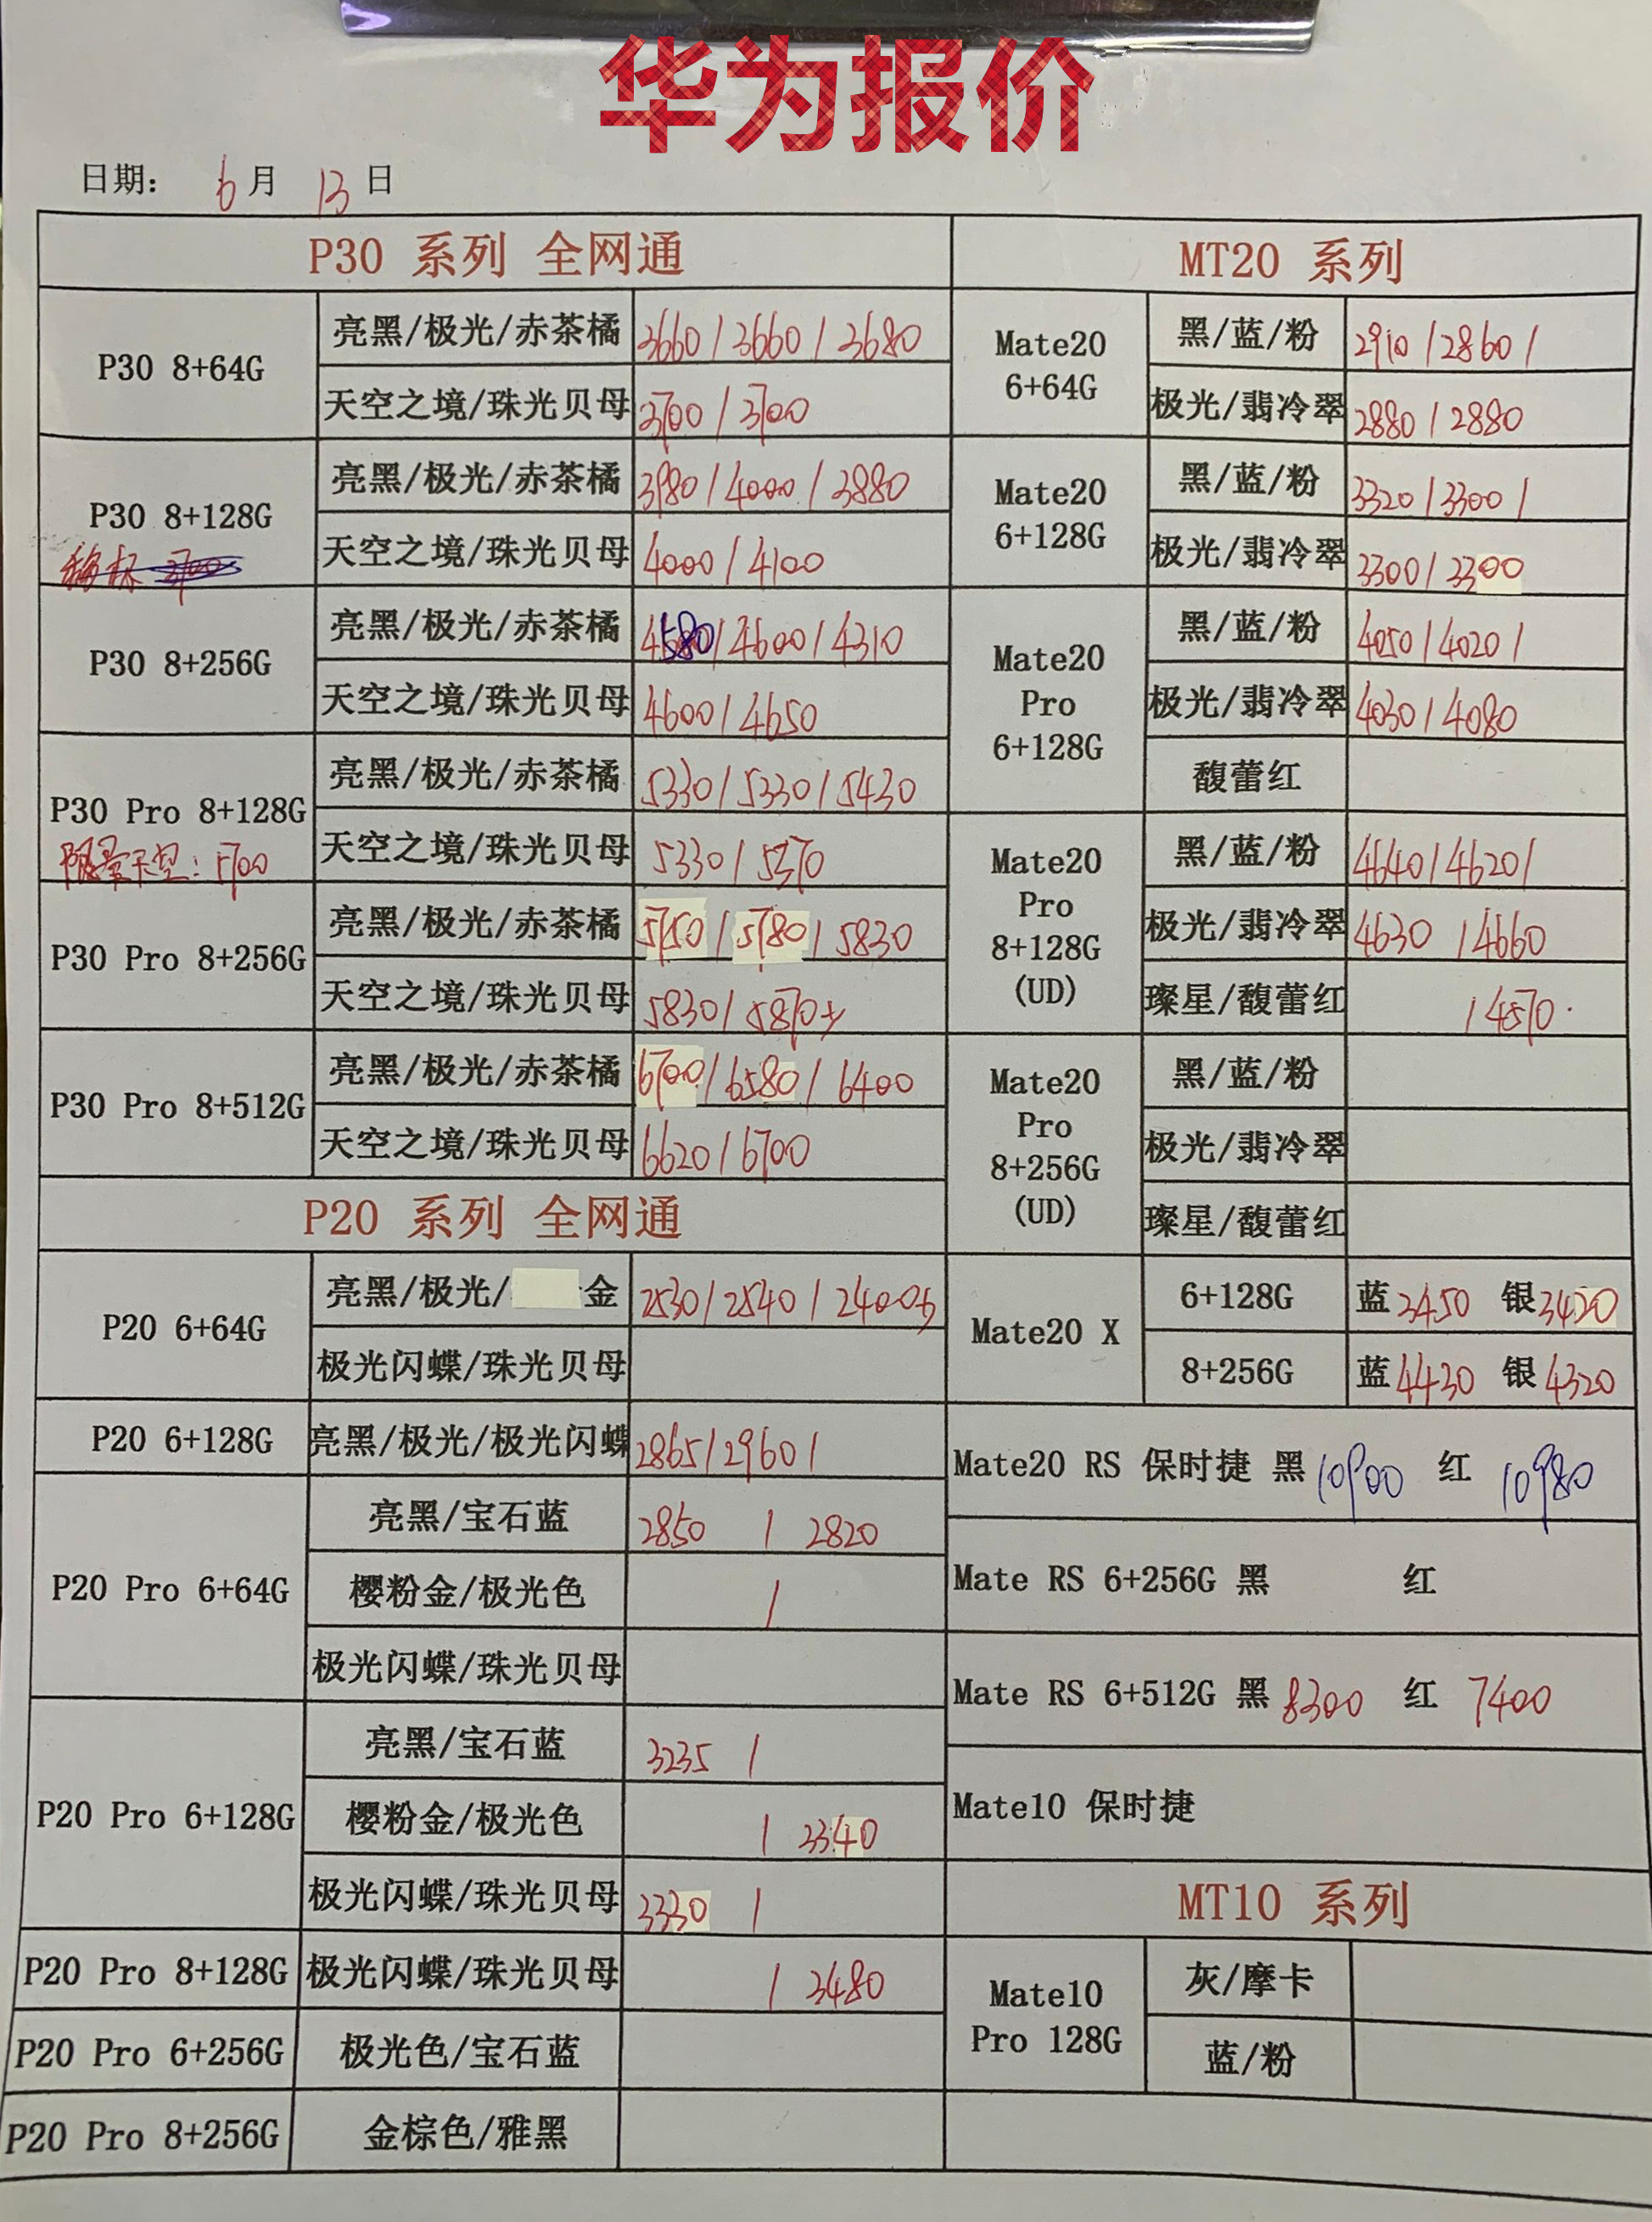 华为报价
日期： 6月 13日
P30 系列 全网通
P30 8+64G
亮黑/极光/赤茶橘 3660/3660/3680
天空之境/珠光贝母 3700/3700
P30 8+128G
亮黑/极光/赤茶橘 3980/4000/3880
天空之境/珠光贝母 4000/4100
P30 8+256G
亮黑/极光/赤茶橘 4580/4600/4310
天空之境/珠光贝母 4600/4650
P30 Pro 8+128G
限量天空：5700
亮黑/极光/赤茶橘 5330/5330/5430
天空之境/珠光贝母 5330/5370
P30 Pro 8+256G
亮黑/极光/赤茶橘 5750/5780/5830
天空之境/珠光贝母 5830/5870
P30 Pro 8+512G
亮黑/极光/赤茶橘 6700/6580/6400
天空之境/珠光贝母 6620/6700
P20 系列 全网通
P20 6+64G
亮黑/极光/ 金 2530/2540/2400
极光闪蝶/珠光贝母
P20 6+128G
亮黑/极光/极光闪蝶 2865/2960/
P20 Pro 6+64G
亮黑/宝石蓝 2850 / 2820
樱粉金/极光色 /
极光闪蝶/珠光贝母
P20 Pro 6+128G
亮黑/宝石蓝 3235 /
樱粉金/极光色 / 3340
极光闪蝶/珠光贝母 3330 /
P20 Pro 8+128G
极光闪蝶/珠光贝母 / 3480
P20 Pro 6+256G
极光色/宝石蓝
P20 Pro 8+256G
金棕色/雅黑
MT20 系列
Mate20
6+64G
黑/蓝/粉 2910/2860/
极光/翡冷翠 2880/2880
Mate20
6+128G
黑/蓝/粉 3320/3300/
极光/翡冷翠 3300/3300
Mate20
Pro
6+128G
黑/蓝/粉 4050/4020/
极光/翡冷翠 4030/4080
馥蕾红
Mate20
Pro
8+128G
(UD)
黑/蓝/粉 4640/4620/
极光/翡冷翠 4630 /4660
璨星/馥蕾红 /4570
Mate20
Pro
8+256G
(UD)
黑/蓝/粉
极光/翡冷翠
璨星/馥蕾红
Mate20 X
6+128G 蓝3450 银3420
8+256G 蓝4430 银4320
Mate20 RS 保时捷 黑10900 红 10980
Mate RS 6+256G 黑 红
Mate RS 6+512G 黑 8300 红 7400
Mate10 保时捷
MT10 系列
Mate10
Pro 128G
灰/摩卡
蓝/粉